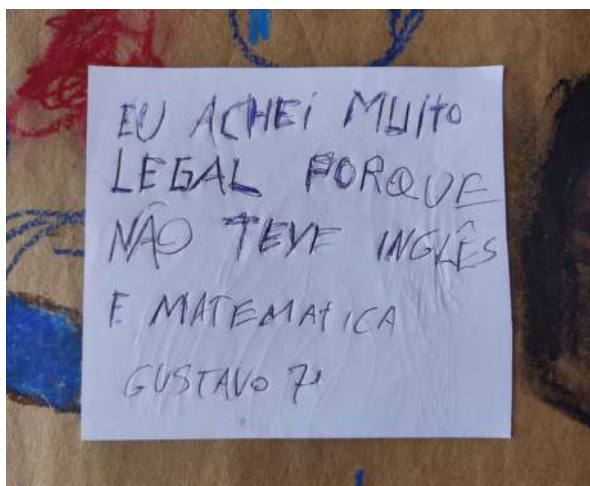 EU ACHEi MUito
LEGAL PORQUE
NÃO TEVE INGLÊS
E MATEMAtiCA
GUSTAVO 7º